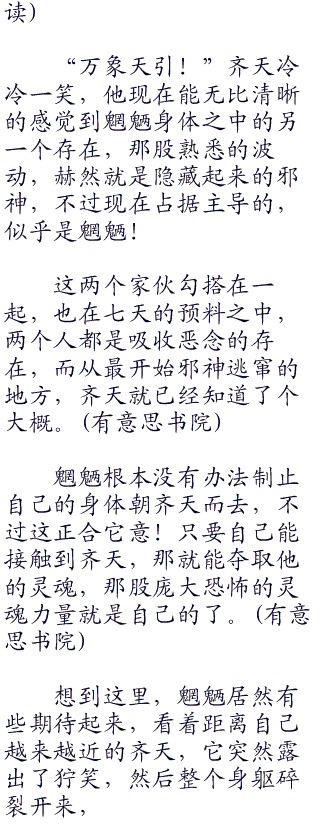 读）
“万象天引！”齐天冷
冷一笑，他现在能无比清晰
的感觉到魍魉身体之中的另
一个存在，那股熟悉的波
动，赫然就是隐藏起来的邪
神，不过现在占据主导的，
似乎是魍魉！
这两个家伙勾搭在一
起，也在七天的预料之中，
两个人都是吸收恶念的存
在，而从最开始邪神逃窜的
地方，齐天就已经知道了个
大概。（有意思书院）
魍魉根本没有办法制止
自己的身体朝齐天而去，不
过这正合它意！只要自己能
接触到齐天，那就能夺取他
的灵魂，那股庞大恐怖的灵
魂力量就是自己的了。（有意
思书院）
想到这里，魍魉居然有
些期待起来，看着距离自己
越来越近的齐天，它突然露
出了狞笑，然后整个身躯碎
裂开来，